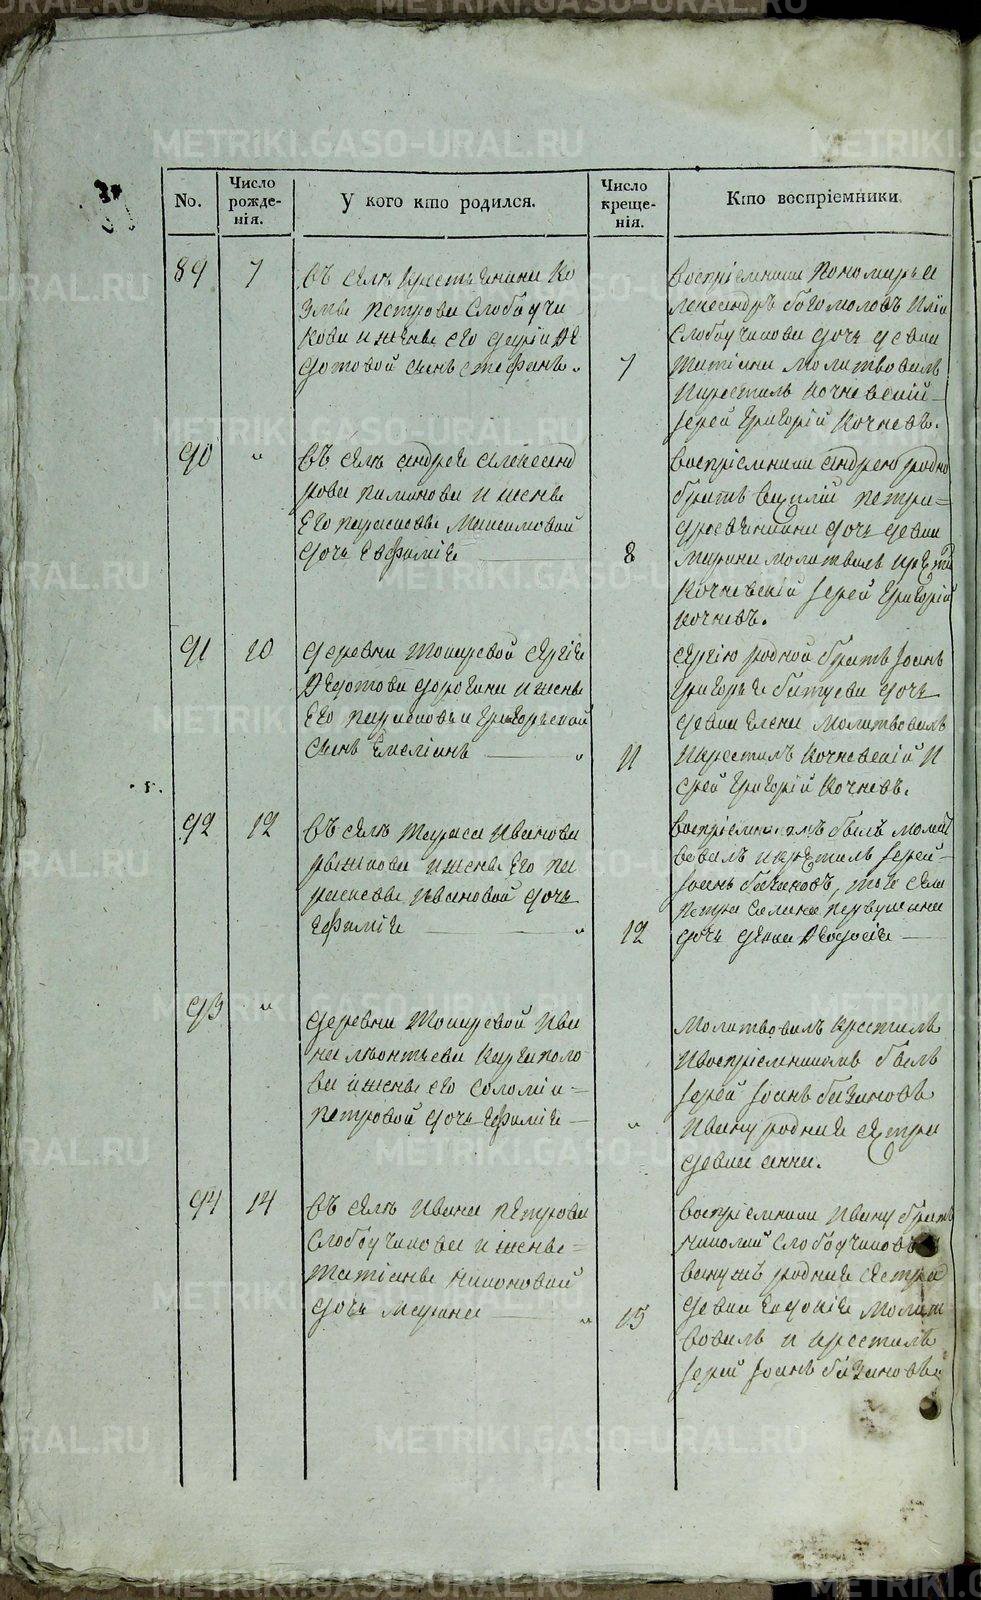 METRIKI.GASO-URAL.RU
No.
Число рожде-нія.
У кого кто родился.
Число креще-нія.
Кто воспріемники.
89
7
въ селѣ крестьянина Ко
змы Петрова Слободчи
кова и жены его Дарьи Ѳе
дотовой сынъ Стефанъ
7
Воспріемники Пономарь А
лександръ Богомоловъ и
Слободчикова дочь девка
Татіана Молитвовалъ
и крестилъ Кочневскій
Іерей Григорій Кочневъ.
90
"
въ селѣ Андрея Александ
рова и жены
его Параскевы Максимовой
дочь Евфимія
8
Воспріемники Андрею родно
братъ Василій Петра
дочь девка
Марина молитвалъ крести
Кочневскій Іерей Григорій
Кочневъ.
91
10
деревни Токаревой Сергія
Ѳедотова Дорогина и жены
его Парасковьи Григорьевой
сынъ Емеліанъ
11
Сергію родной братъ Іоанъ
Григорья Битуева дочь
девка Елена Молитвовалъ
и крестилъ Кочневскій И
ерей Григорій Кочневъ.
92
12
въ селѣ Тараса Иванова
Рыжкова и жены его Па
раскевы Ивановой дочь
Ефимія
12
Воспріемникомъ былъ молит
вовалъ и крѣстилъ Іерей
Іоанъ Бажановъ, того села
Петра Первушина
дочь девка Ѳеодосія
93
"
деревни Токаревой Ива
на Леонтьева Каргаполо
ва и жены его Соломіи
Петровой дочь Ефимія
"
Молитвовалъ крестилъ
и воспріемникомъ былъ
Іерей Іоанъ Бажановъ
Ивану родная сестра
девка Анна.
94
14
въ селѣ Ивана Петрова
Слободчикова и жены
Татіаны Никоновой
дочь Марина
15
Воспріемники Ивану братъ
Николай Слободчиковъ
родная сестра
девка Евдокія Молит
вовалъ и крестилъ
Іерей Іоанъ Бажановъ.